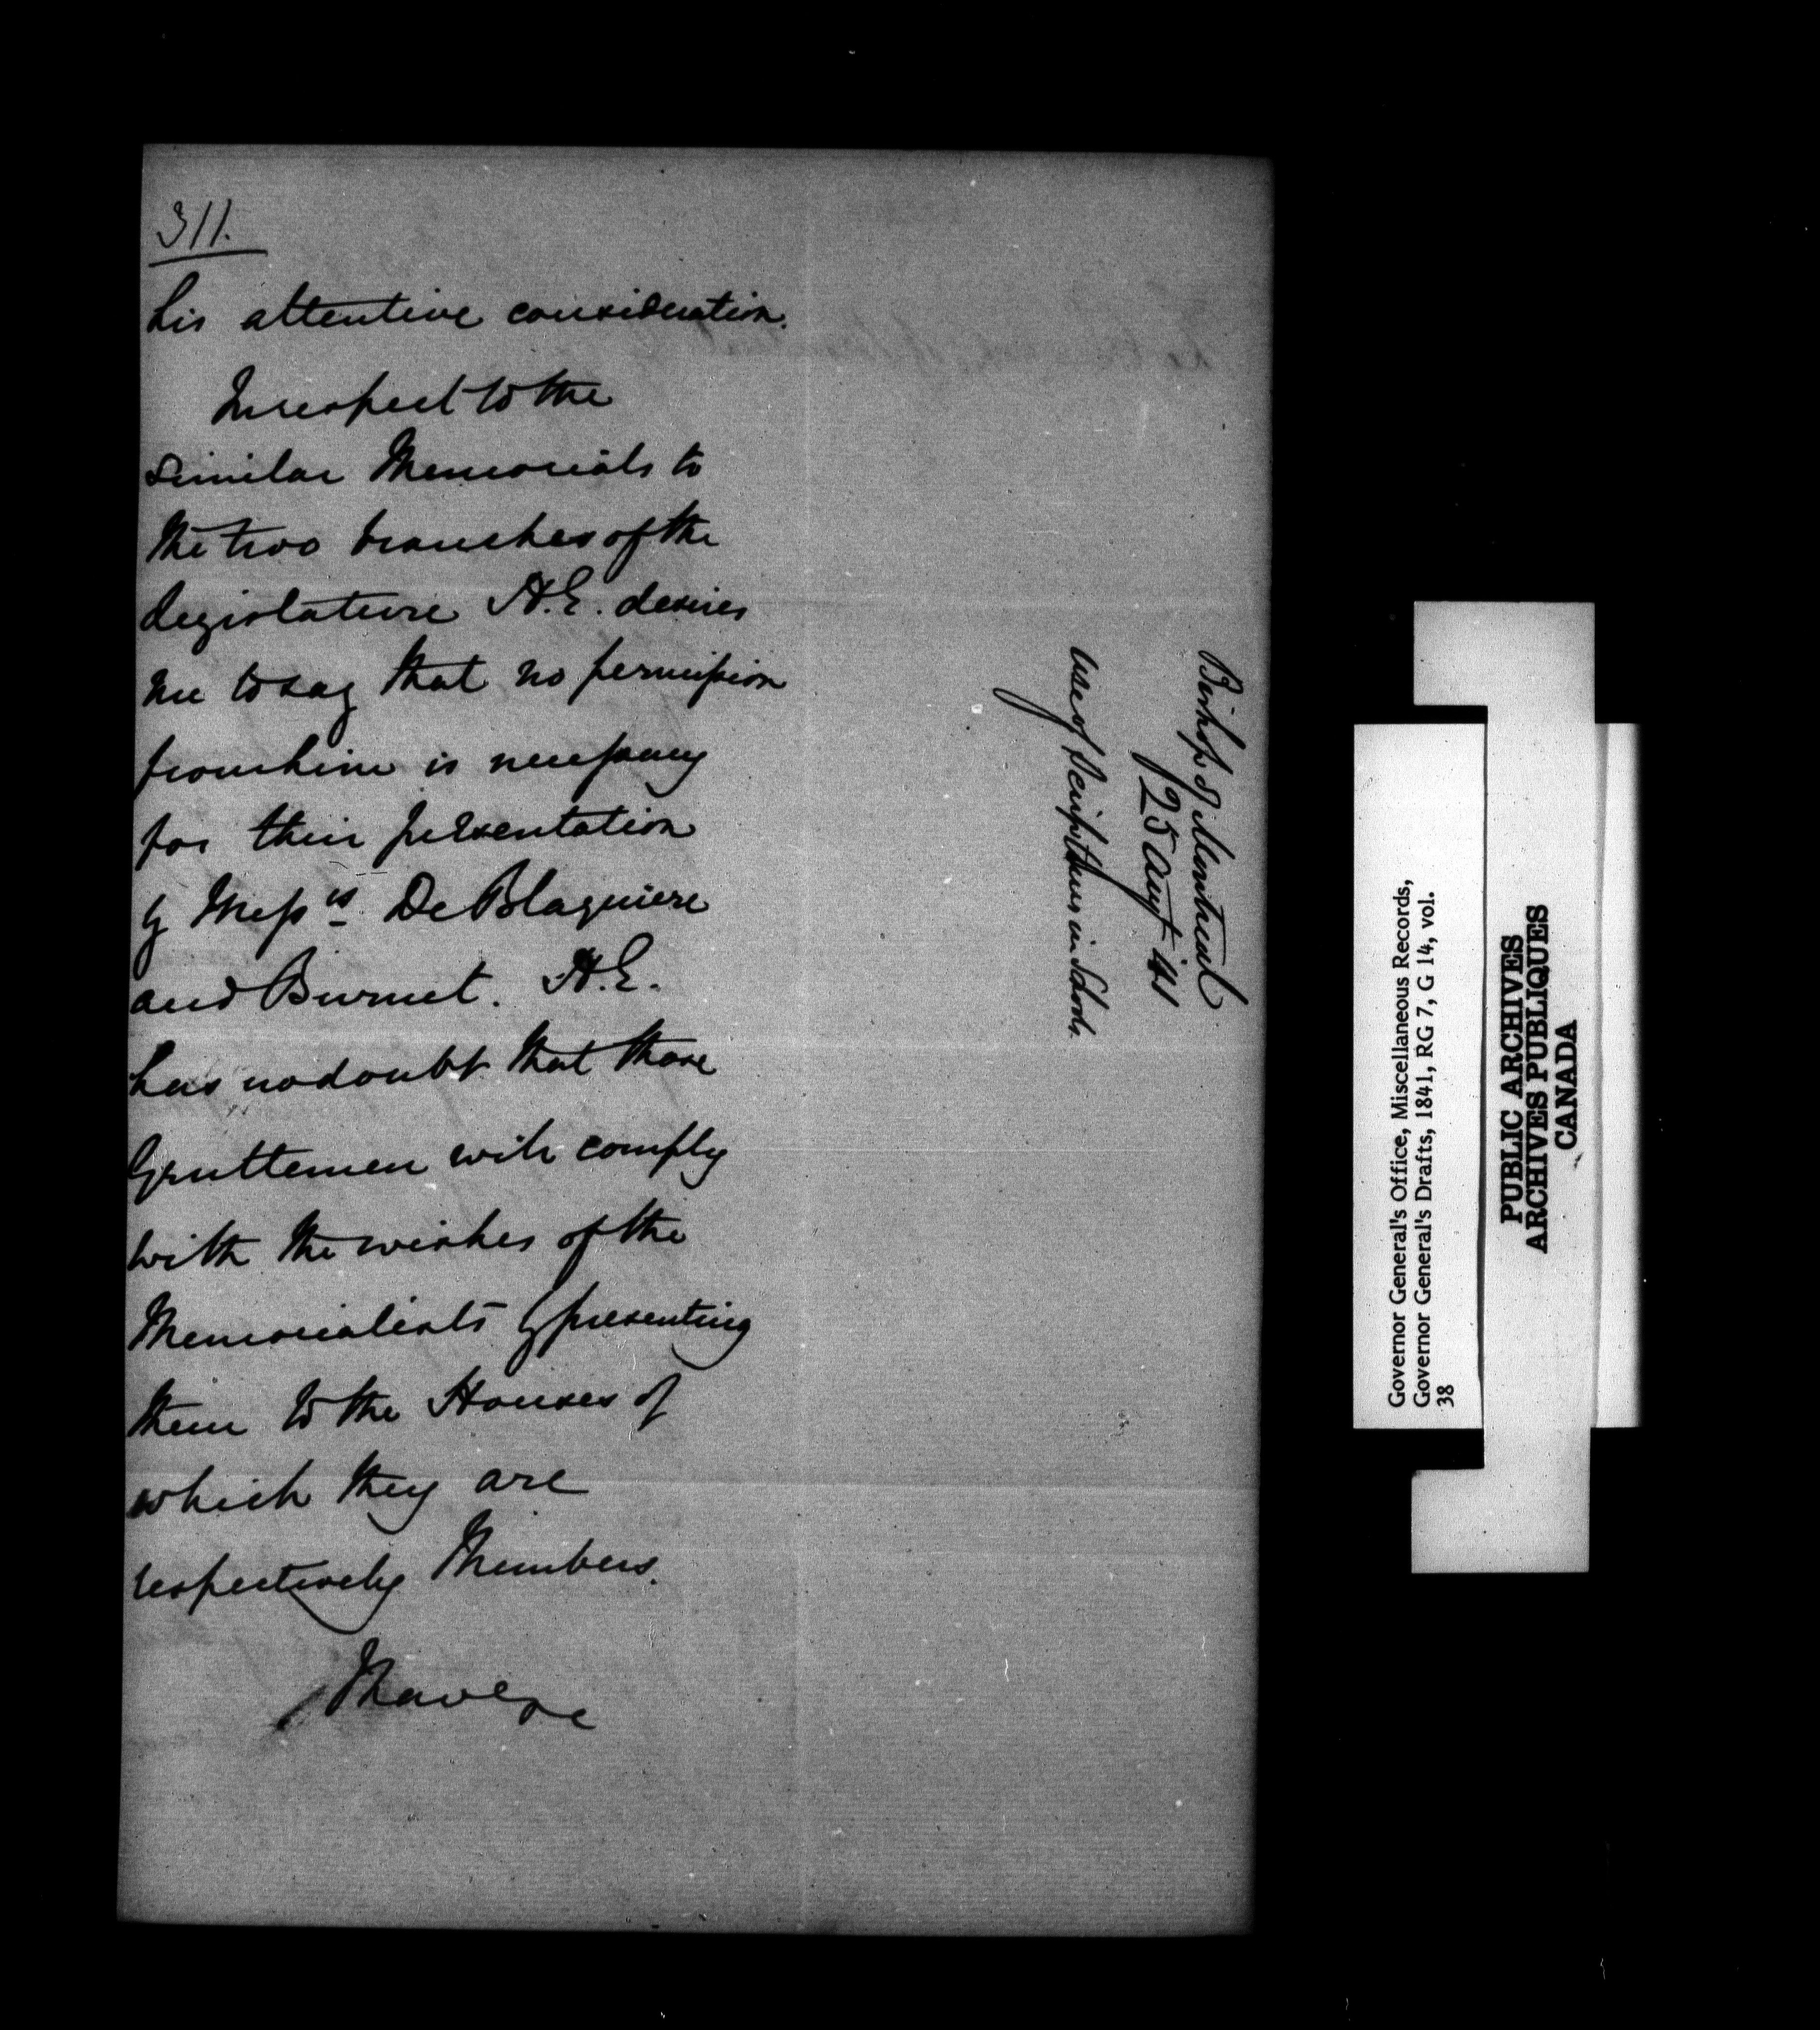 311.
his attentive consideration.
In respect to the
similar Memorials to
the two branches of the
Legislature H.E. desires
me to say that no permission
from him is necessary
for their presentation
by Messrs. De Blaquiere
and Burnet. H.E.
has no doubt that those
Gentlemen will comply
with the wishes of the
Memorialists by presenting
them to the Houses of
which they are
respectively Members.
I have &c
Bishop of Montreal
25 Augt 41
Use of Scriptures in Schools.
Governor General's Office, Miscellaneous Records,
Governor General's Drafts, 1841, RG 7, G 14, vol.
38
PUBLIC ARCHIVES
ARCHIVES PUBLIQUES
CANADA